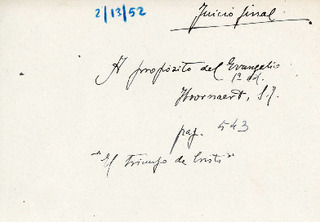 2/13/52
Juicio final
A propósito del Evangelio
1ª ed.
Hoornaert, S.J.
pag. 543
"El Triunfo de Cristo"